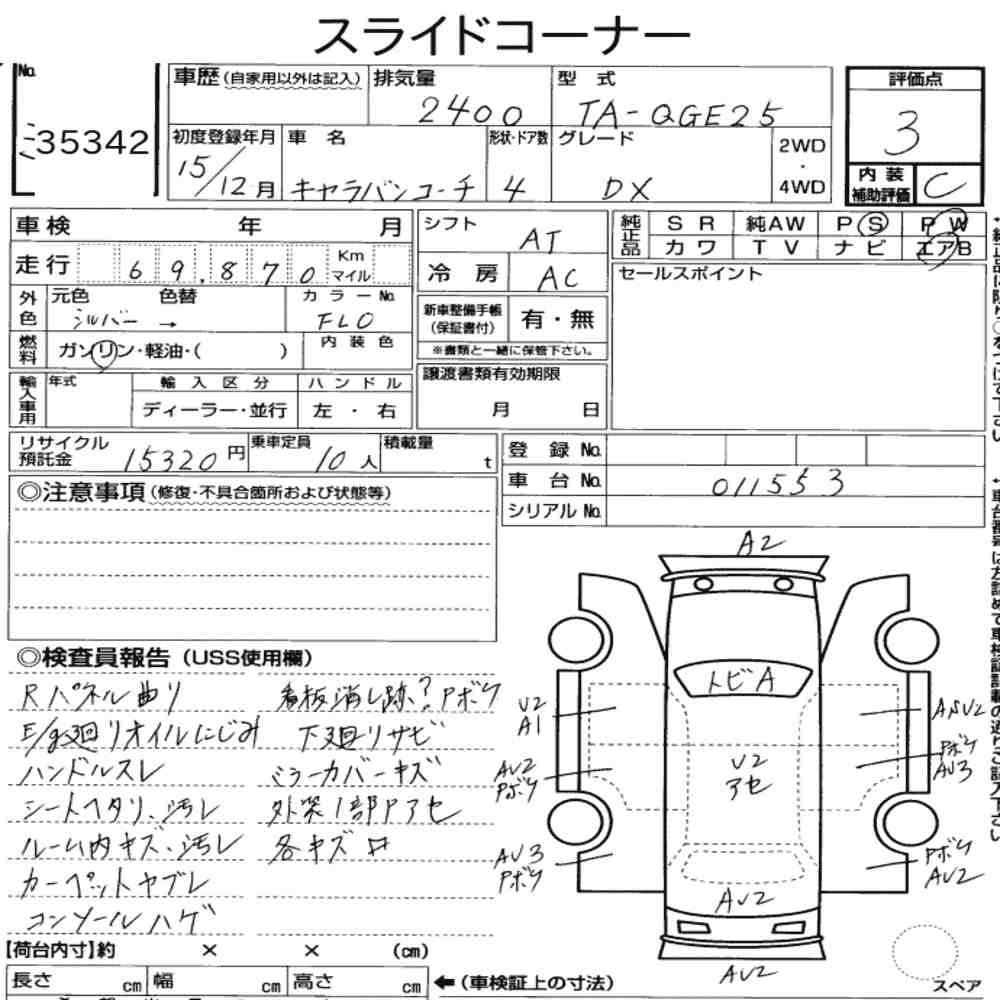 スライドコーナー
No.
35342
車歴(自家用以外は記入)
排気量
2400
型式
TA-QGE25
評価点
3
初度登録年月
15/12月
車名
キャラバンコーチ
形状・ドア数
4
グレード
DX
2WD
・
4WD
内装
補助評価
C
車検 年 月
シフト
AT
純正品
SR 純AW PS PW
カワ TV ナビ エアB
走行
69.870
Km
マイル
冷房
AC
セールスポイント
外色
元色 色替
シルバー →
カラーNo.
FL0
新車整備手帳
(保証書付)
有・無
燃料
ガソリン・軽油・( )
内装色
※書類と一緒に保管下さい。
輸入車用
年式
輸入区分
ハンドル
ディーラー・並行
左・右
譲渡書類有効期限
月 日
リサイクル
預託金
15320円
乗車定員
10人
積載量
t
登録No.
車台No.
011553
シリアルNo.
◎注意事項(修復・不具合箇所および状態等)
◎検査員報告(USS使用欄)
Rパネル曲リ
看板消し跡?Pボケ
E/g廻リオイルにじみ
下廻リサビ
ハンドルスレ
ミラーカバーキズ
シートヘタリ、汚レ
外装1部Pアセ
ルーム内キズ、汚レ
各キズ
カーペットヤブレ
コンソールハゲ
A2
トビA
U2
A1
AU2
Pボケ
U2
アセ
Pボケ
AU3
AU3
Pボケ
Pボケ
AU2
AU2
AU2
スペア
【荷台内寸】約 × × (cm)
長さ cm 幅 cm 高さ cm
←(車検証上の寸法)